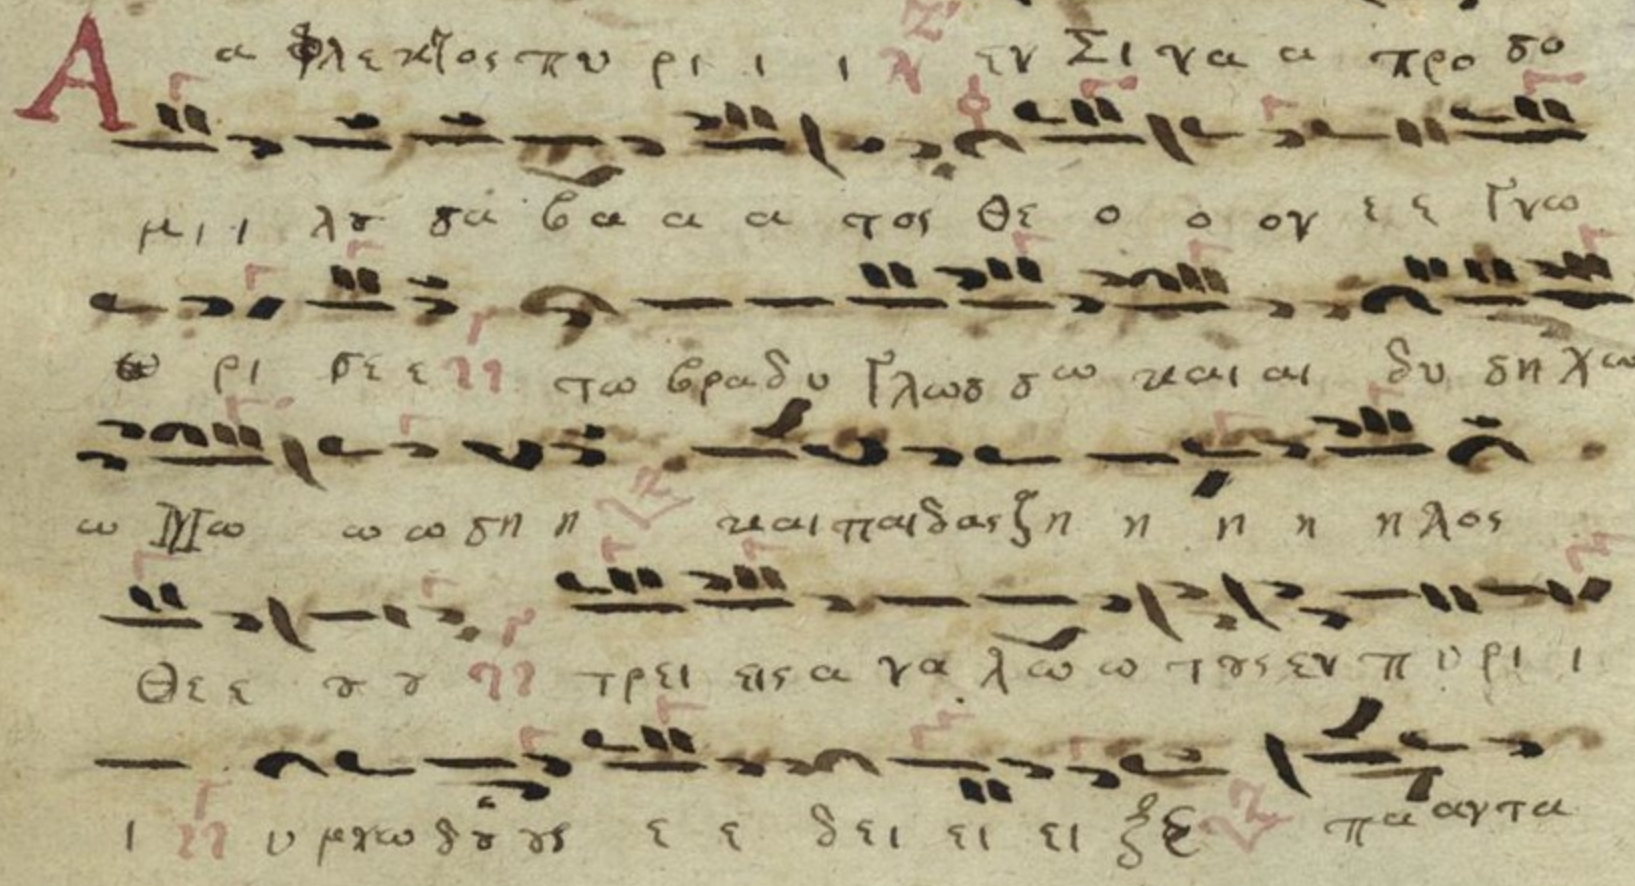 Α α φλεκτος πυ ρι ι ι εν Σι να α α προ σο
μι ι λυ σα βα α α α τος Θε ο ο ον ε ε γνω
ω ρι σε ε τω βραδυ γλωσ σω και αι δυ ση χω
ω Μω ω ω ση η και παιδας ζη η η η η λος
Θε ε ου ου τρει εις α να λω ω τους εν πυ ρι ι
ι υ μνω δου ους ε ε δει ει ει ξε πα αντα